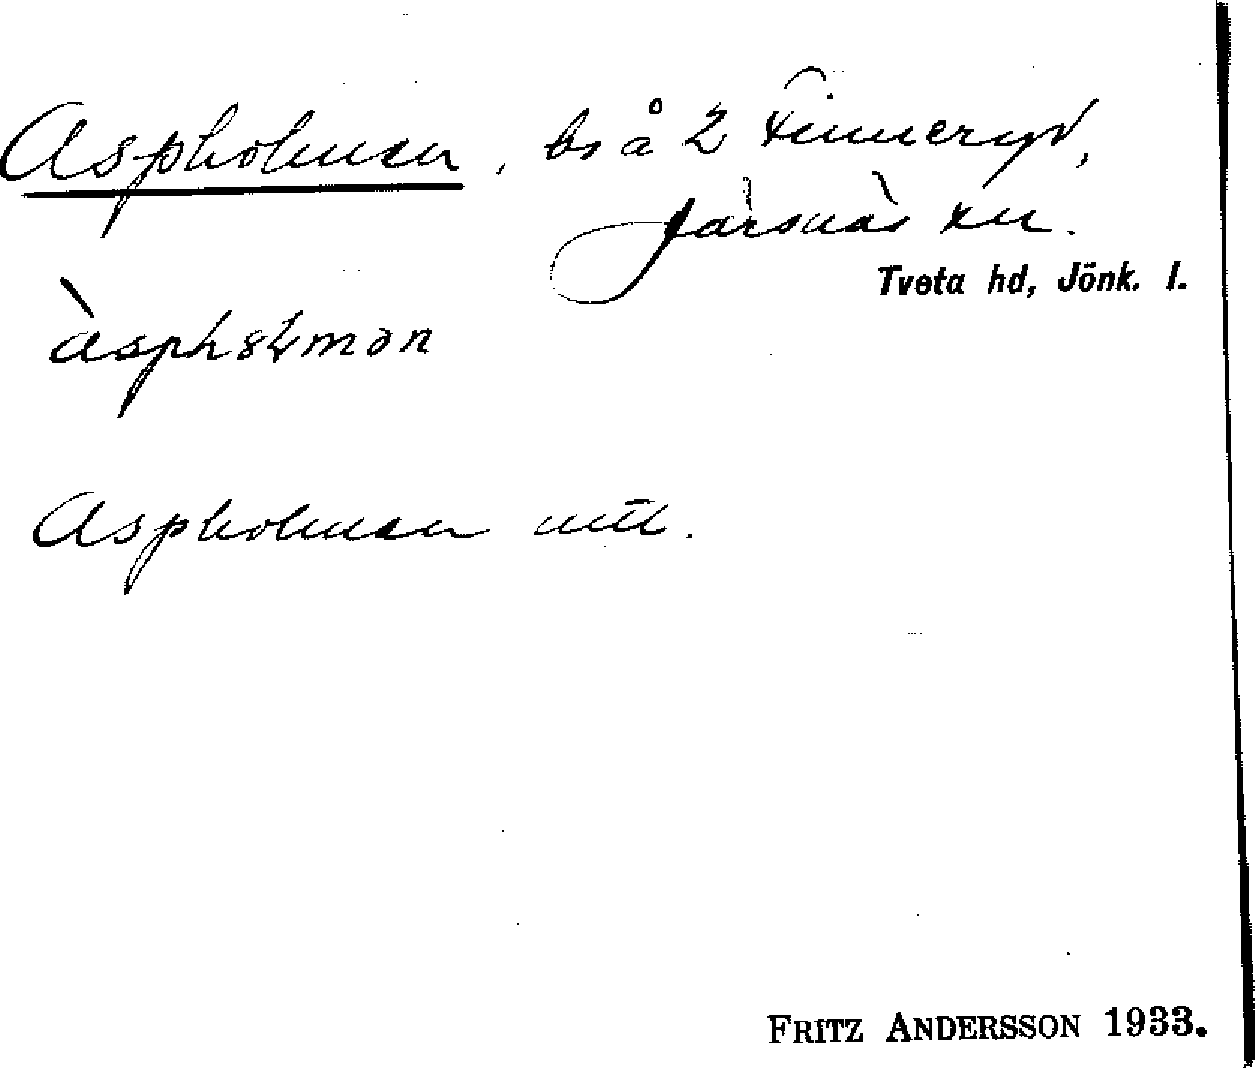 Aspholmen, bs å 2 Kinneryd,
Järsnäs sn.
Tveta hd, Jönk. l.
Aspholmen
FRITZ ANDERSSON 1933.